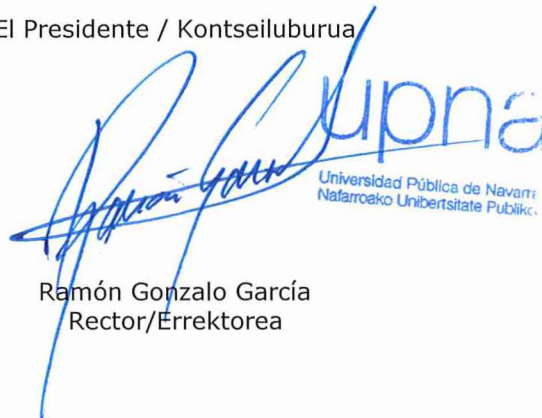 El Presidente / Kontseiluburua
upna
Universidad Pública de Navarra
Nafarroako Unibertsitate Publiko
Ramón Gonzalo García
Rector/Errektorea